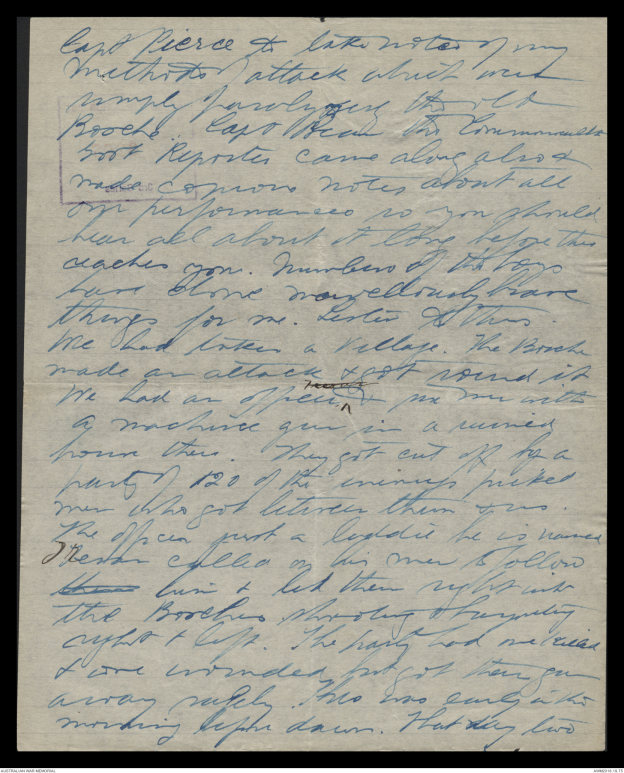 Capt Pierce to take notes of my
methods of attack which were
simply paralysing the old
Boosche. Capt Bean the Commonwealth
Govt Reporter came along also &
made copious notes about all
our performances so you should
hear all about it long before this
reaches you. Numbers of the boys
have done marvellously brave
things for me. Listen to this.
We had taken a village. The Boosche
made an attack & got round it
We had an officer & six men with
a machine gun in a ruined
house there. They got cut off by a
party of 120 of the enemys picked
men who got between them & us.
The officer just a laddie he is named
called on his men to follow
him & led them right into
the Boosches shooting & bayoneting
right & left. The party had one killed
& one wounded but got their gun
away safely. This was early in the
morning before dawn. That day two
AUSTRALIAN WAR MEMORIAL